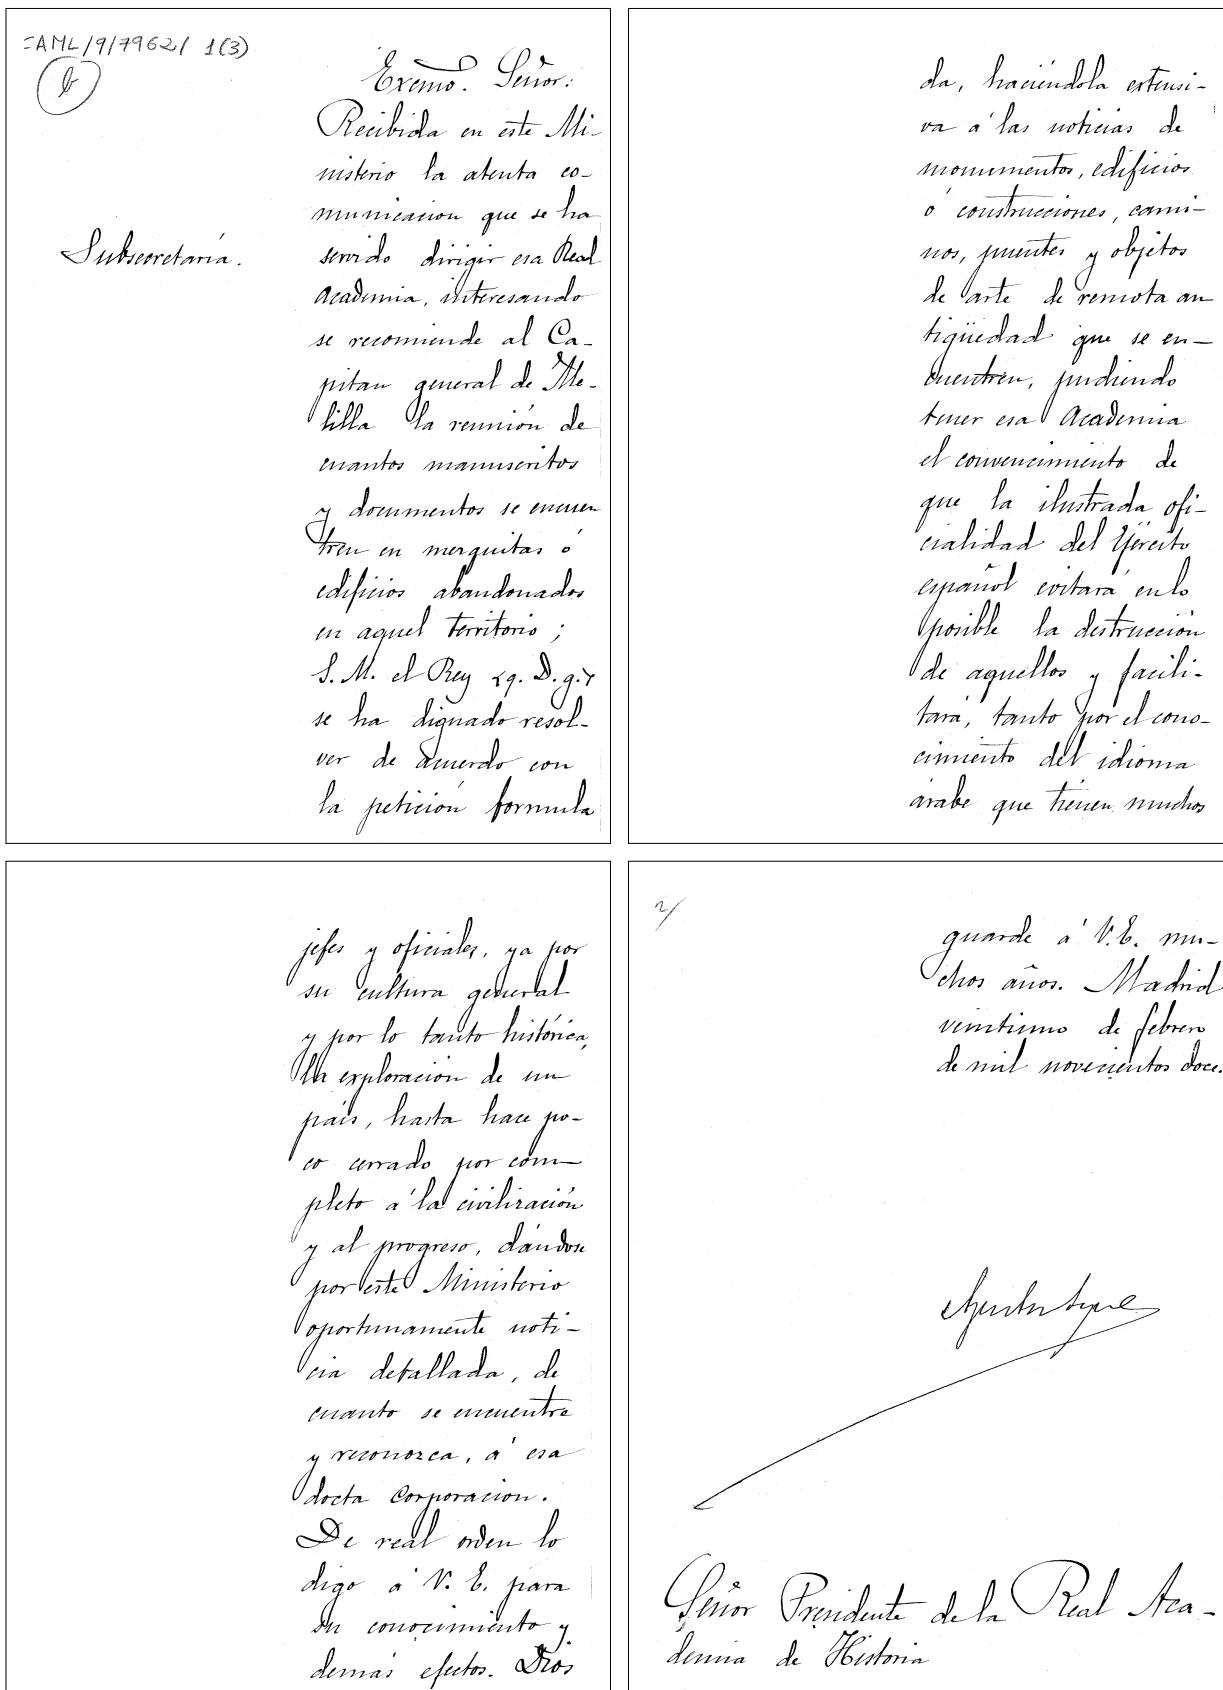 CAML/9/7962/ 1(3)
Excmo. Señor:
Recibida en este Mi-
nisterio la atenta co-
municacion que se ha
Subsecretaria.
servido dirigir esa Real
Academia, interesando
se recomiende al Ca-
pitan general de Me-
lilla la reunión de
cuantos manuscritos
y documentos se encuen
tren en mezquitas o
edificios abandonados
en aquel territorio;
S. M. el Rey (q. D. g.)
se ha dignado resol-
ver de acuerdo con
la petición formula
da, haciéndola extensi-
va á las noticias de
monumentos, edificios
ó construcciones, cami-
nos, puentes y objetos
de arte de remota an
tigüedad que se en-
cuentren, pudiendo
tener esa Academia
el convencimiento de
que la ilustrada ofi-
cialidad del Ejército
español evitará en lo
posible la destrucción
de aquellos y facili-
tara, tanto por el cono-
cimiento del idioma
arabe que tienen muchos
jefes y oficiales, ya por
su cultura general
y por lo tanto histórica,
la exploracion de un
pais, hasta hace po-
co cerrado por com-
pleto á la civilización
y al progreso, dándose
por este Ministerio
oportunamente noti-
cia detallada, de
cuanto se encuentre
y reconozca, á esa
docta Corporacion.
De real orden lo
digo á V. E. para
su conocimiento y
demás efectos. Dios
2/
guarde á V. E. mu-
chos años. Madrid
veintiuno de febrero
de mil novecientos doce.
Señor Presidente de la Real Aca-
demia de Historia